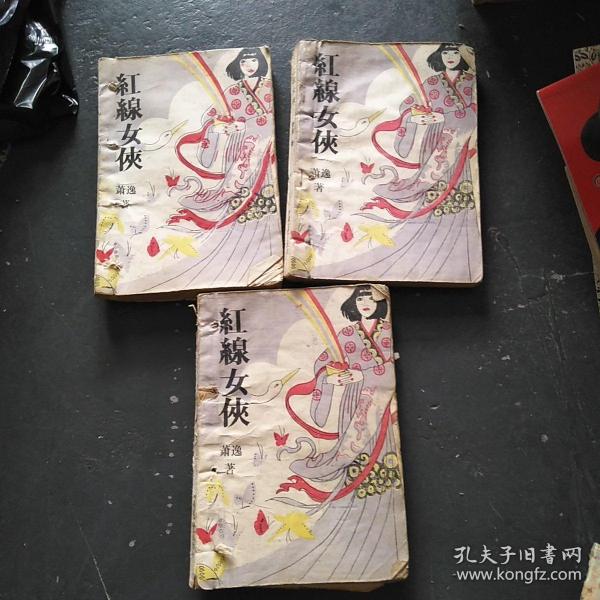 紅線女俠
蕭逸
著
紅線女俠
蕭逸
著
紅線女俠
蕭逸
著
孔夫子旧書网
www.kongfz.com